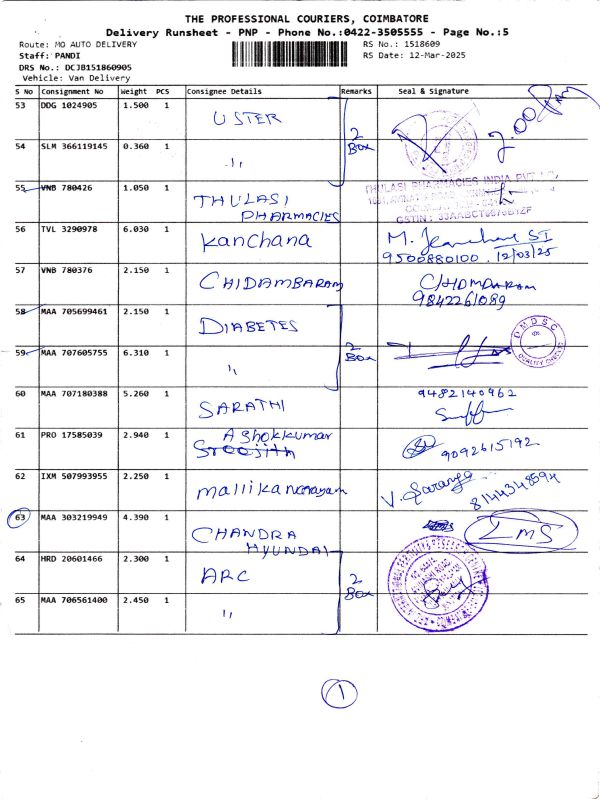 THE PROFESSIONAL COURIERS, COIMBATORE
Delivery Runsheet - PNP - Phone No.:0422-3505555 - Page No.:5
Route: MO AUTO DELIVERY RS No.: 1518609
Staff: PANDI RS Date: 12-Mar-2025
DRS No.: DCJB151860905
Vehicle: Van Delivery
S No Consignment No Weight PCS Consignee Details Remarks Seal & Signature
53 DDG 1024905 1.500 1 USTER 2 Box
54 SLM 366119145 0.360 1 "
55 VNB 780426 1.050 1 THULASI PHARMACIES
THULASI PHARMACIES INDIA
56 TVL 3290978 6.030 1 Kanchana
9500880100. 12/03/25
57 VNB 780376 2.150 1 CHIDAMBARAM CHIDMDARAM
9842261089
58 MAA 705699461 2.150 1 DIABETES 2 Box DMDSC
59 MAA 707605755 6.310 1 "
60 MAA 707180388 5.260 1 SARATHI 9482140962
61 PRO 17585039 2.940 1 Ashokkumar 9092615192
Sreejith
62 IXM 507993955 2.250 1 mallikanarayam V. Saranya 8144348594
63 MAA 303219949 4.390 1 CHANDRA HYUNDAI
64 HRD 20601466 2.300 1 ARC 2 Box
65 MAA 706561400 2.450 1 "
1